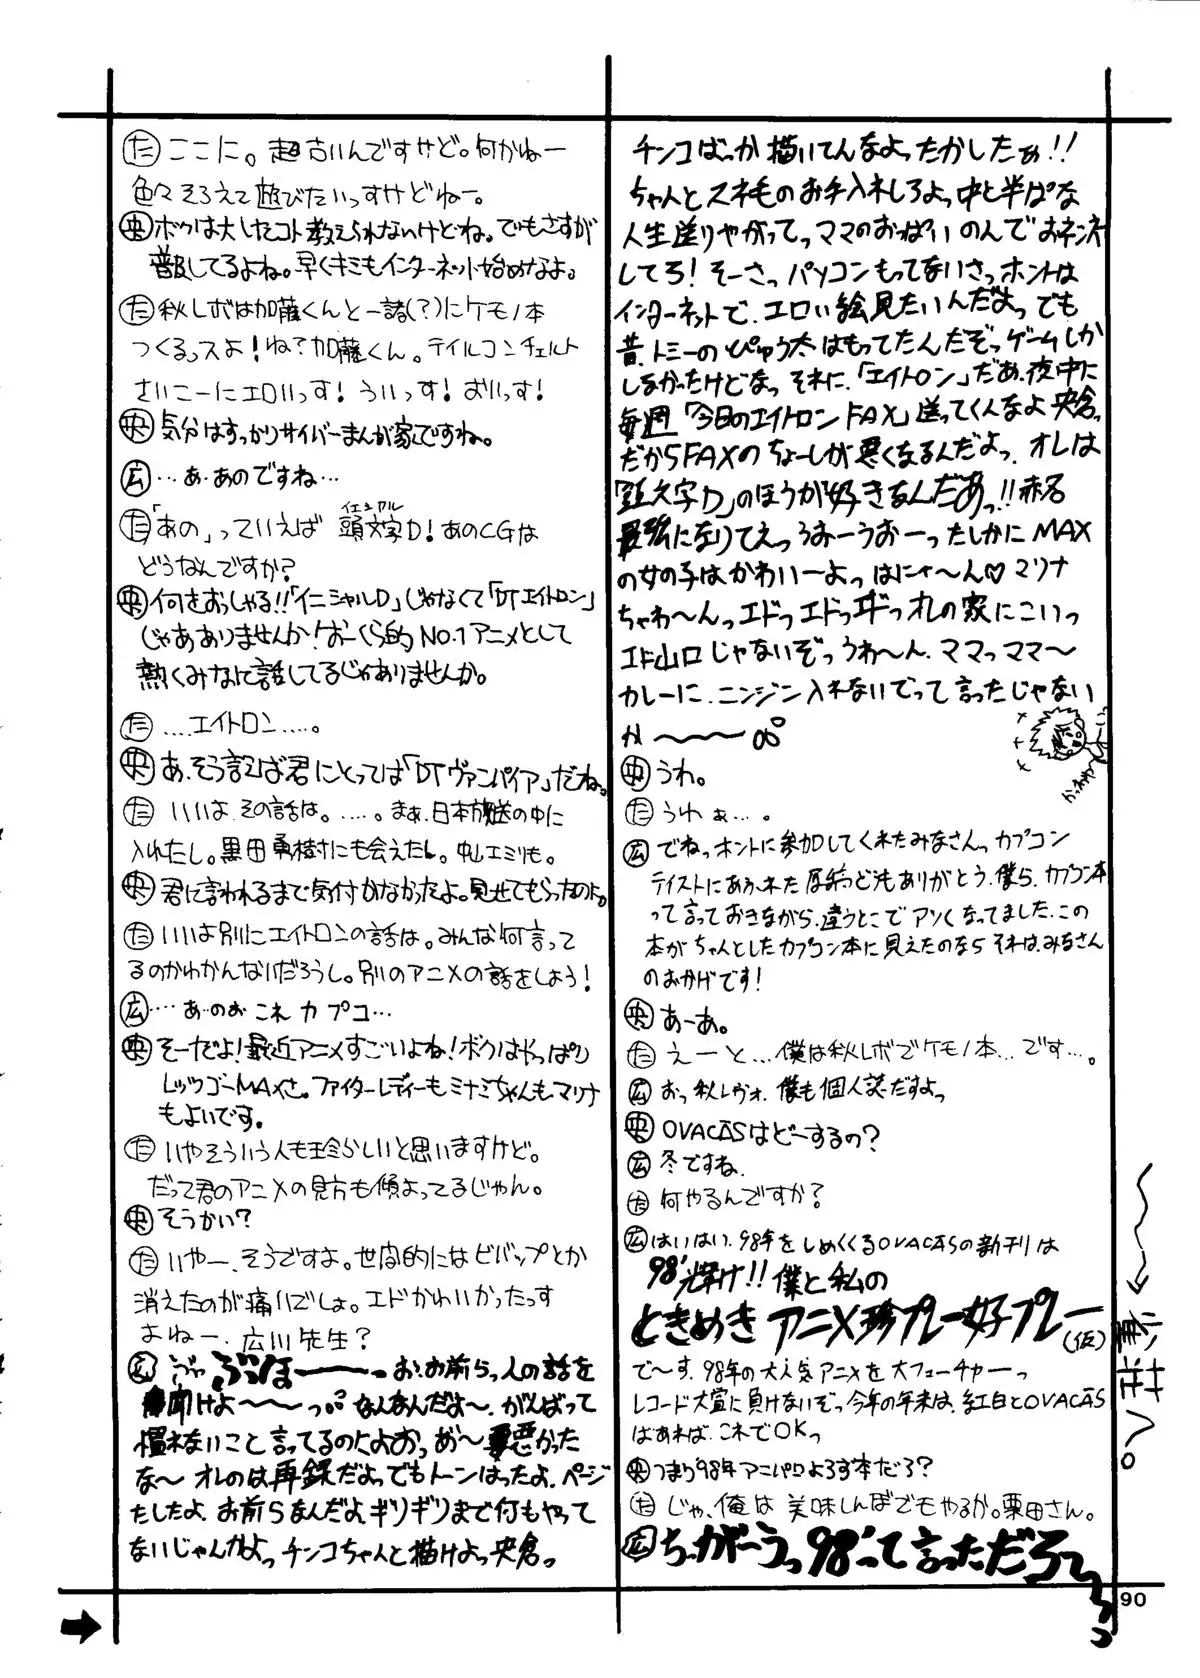 ㋟ここに。超古いんですけど。何かねー
色々そろえて遊びたいっすけどねー。
㊥ボクは大したコト教えられないけどね。でもさすが
普及してるよね。早くキミもインターネット始めなよ。
㋟秋レボは加藤くんと一諸(?)にケモノ本
つくるっスよ!ね?加藤くん。テイルコンチェルト
さいこーにエロいっす!ういっす!おいっす!
㊥気分はすっかりサイバーまんが家ですね。
広…あ・あのですね…
㋟「あの」っていえば 頭文字D!あのCGは
イニシャル
どうなんですか?
㊥何をおっしゃる!!「イニシャルD」じゃなくて「DTエイトロン」
じゃありませんか!おーくら的NO.1アニメとして
熱くみなに話してるじゃありませんか。
㋟....エイトロン.....。
㊥あ、そう言えば君にとっては「DTヴァンパイア」だね。
㋟いいよ、その話は。.....。まぁ、日本放送の中に
入れたし。黒田勇樹にも会えたし。中山エミリも。
㊥君に言われるまで気付かなかったよ。見せてもらったのに。
㋟いいよ別にエイトロンの話は。みんな何言って
るのかわかんないだろうし。別のアニメの話をしよう!
広…あ…のぉ これ カプコ…
㊥そーだよ!最近アニメすごいよね!ボクはやっぱり
レッツゴーMAXさ。ファイターレディーもミナミちゃんもマリナ
もよいです。
㋟いやそういう人も珍らしいと思いますけど。
だって君のアニメの見方も傾よってるじゃん。
㊥そうかい?
㋟いやー、そうですよ。世間的にはビバップとか
消えたのが痛いでしょ。エドかわいかったっす
よねー、広川先生?
広 ぶほーーーっ お、お前ら、人の話を
聞けよ〜〜〜っ。なんなんだよ〜、がんばって
慣れないこと言ってるのによおっ あ〜悪かった
な〜 オレのは再録だよっでもトーンはったよ、ページ
たしたよ、お前らなんだよギリギリまで何もやって
ないじゃんかよっチンコちゃんと描けよっ央倉っ
チンコばっか描いてんなよったかしたぁ!!
ちゃんとスネ毛のお手入れしろよっ中と半ぱな
人生送りやがってっママのおっぱいのんでおネンネ
してろ!そーさっパソコンもってないさっホントは
インターネットで、エロい絵見たいんだよっでも
昔、トミーのぴゅう太はもってたんだぞっゲームしか
しなかったけどなっそれに、「エイトロン」だあ、夜中に
毎週「今日のエイトロンFAX」送ってくんなよ央倉っ
だからFAXのちょーしが悪くなるんだよっ、オレは
「頭文字D」のほうが好きなんだあっ!!赤名
最強になりてえっうおーうおーったしかにMAX
の女の子はかわいーよっはにゃ〜ん♡マリナ
ちゃわ〜んっエドっエドっエドっオレの家にこいっ
エド山口じゃないぞっうわ〜ん、ママっママ〜
カレーに、ニンジン入れないでって言ったじゃない
か〜〜〜〜
㊥うわ。
㋟うわぁ…。
広でねっホントに参加してくれたみなさんっカプコン
テイストにあふれた原稿っどもありがとう、僕ら、カプコン本
って言っておきながら、違うとこでアツくなってました、この
本がちゃんとしたカプコン本に見えたのならそれは、みなさん
のおかげです!
㊥あーあ。
㋟えーと…僕は秋レボでケモノ本…です…。
広おっ秋レヴォ、僕も個人誌だすよっ
㊥OVACASはどーするの?
広冬ですね。
㋟何やるんですか?
広はいはい、98年をしめくくるOVACASの新刊は
98'輝け!!僕と私の
ときめきアニメ珍プレー好プレー(仮)
で〜す。98年の大人気アニメを大フューチャーっ
レコード大賞に負けないぞっ今年の年末は、紅白とOVACAS
はあれば、これでOKっ
㊥つまり'98年アニパロよろず本だろ?
㋟じゃ、俺は美味しんぼでもやるか。栗田さん。
広ちがーうっ98'って言っただろーっ
90